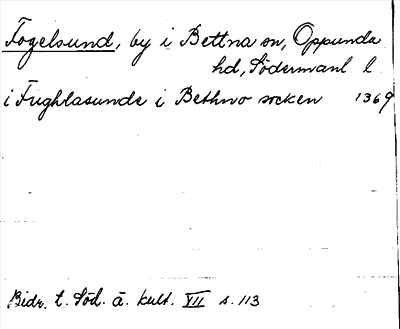 Fogelsund, by i Bettna sn, Oppunda
hd, Södermanl. l.
i Fughlasunde i Bethno socken 1369
Bidr. t. Söd. ä. kult. VII s. 113